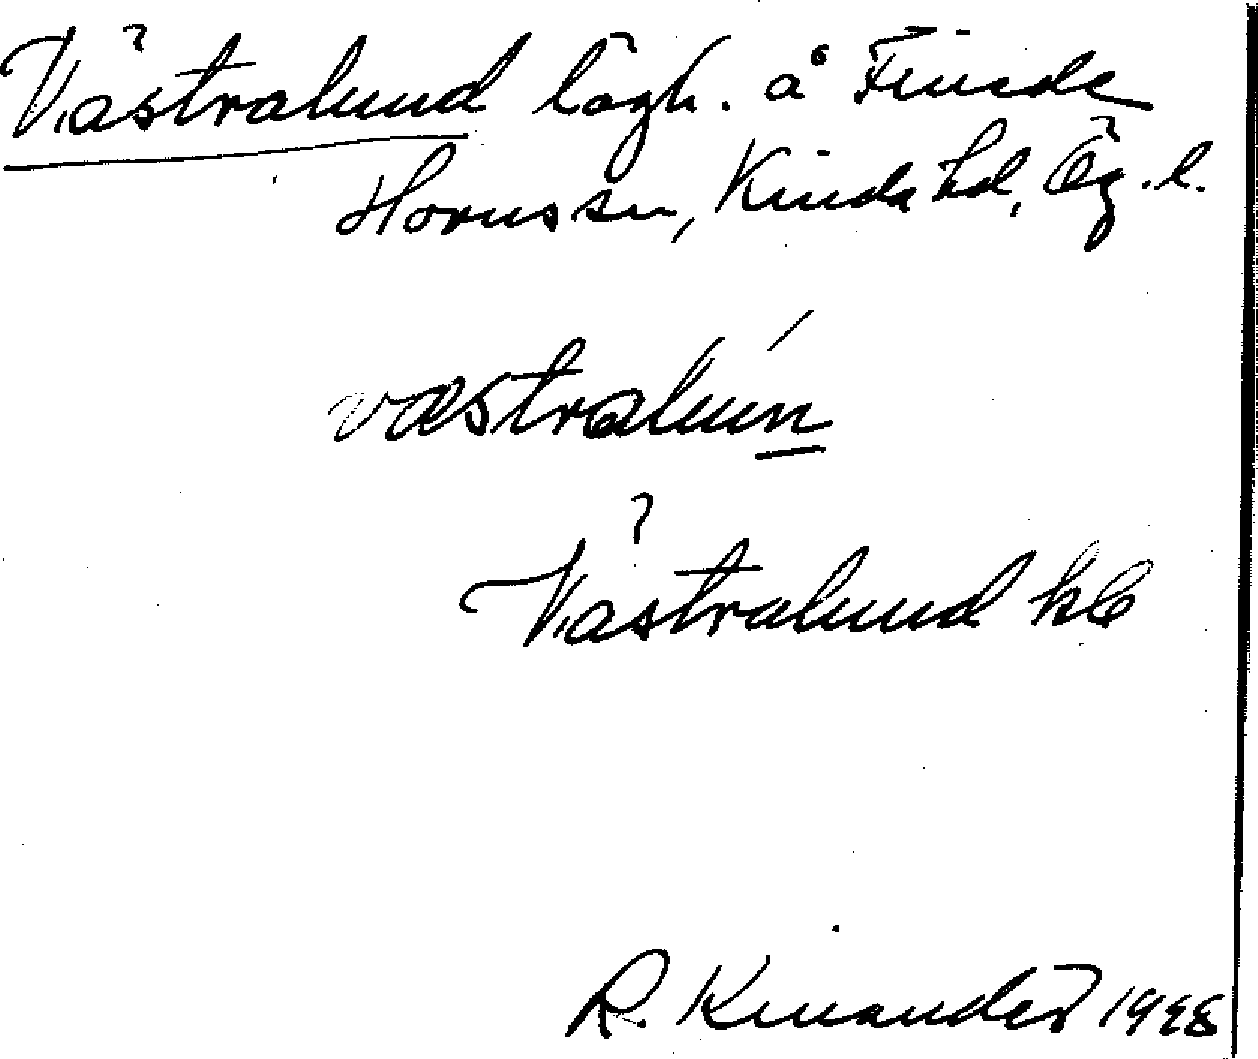 Västralund lägh. å Finede
Horns sn, Kinda hd, Ög.l.
væstralún
Västralund kb
R. Kinander 1948